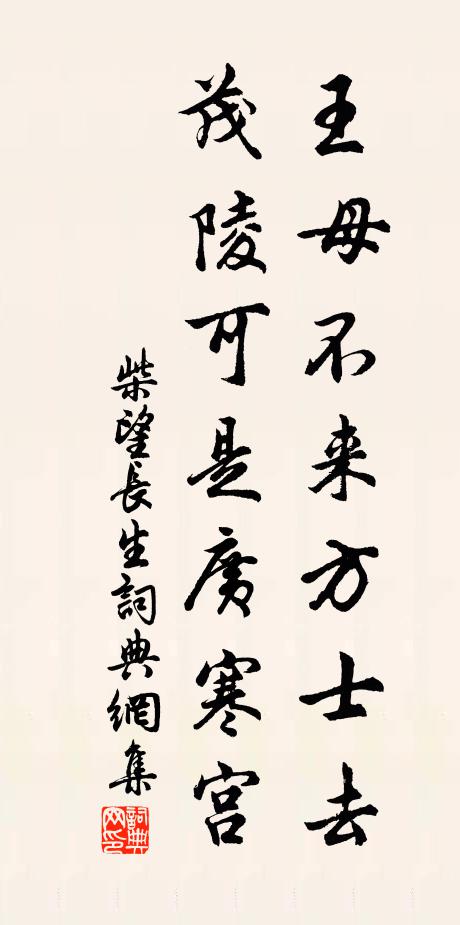 王毋不来方士去
茂陵可是廣寒宮
柴望長生詞典網集
詞典
网印